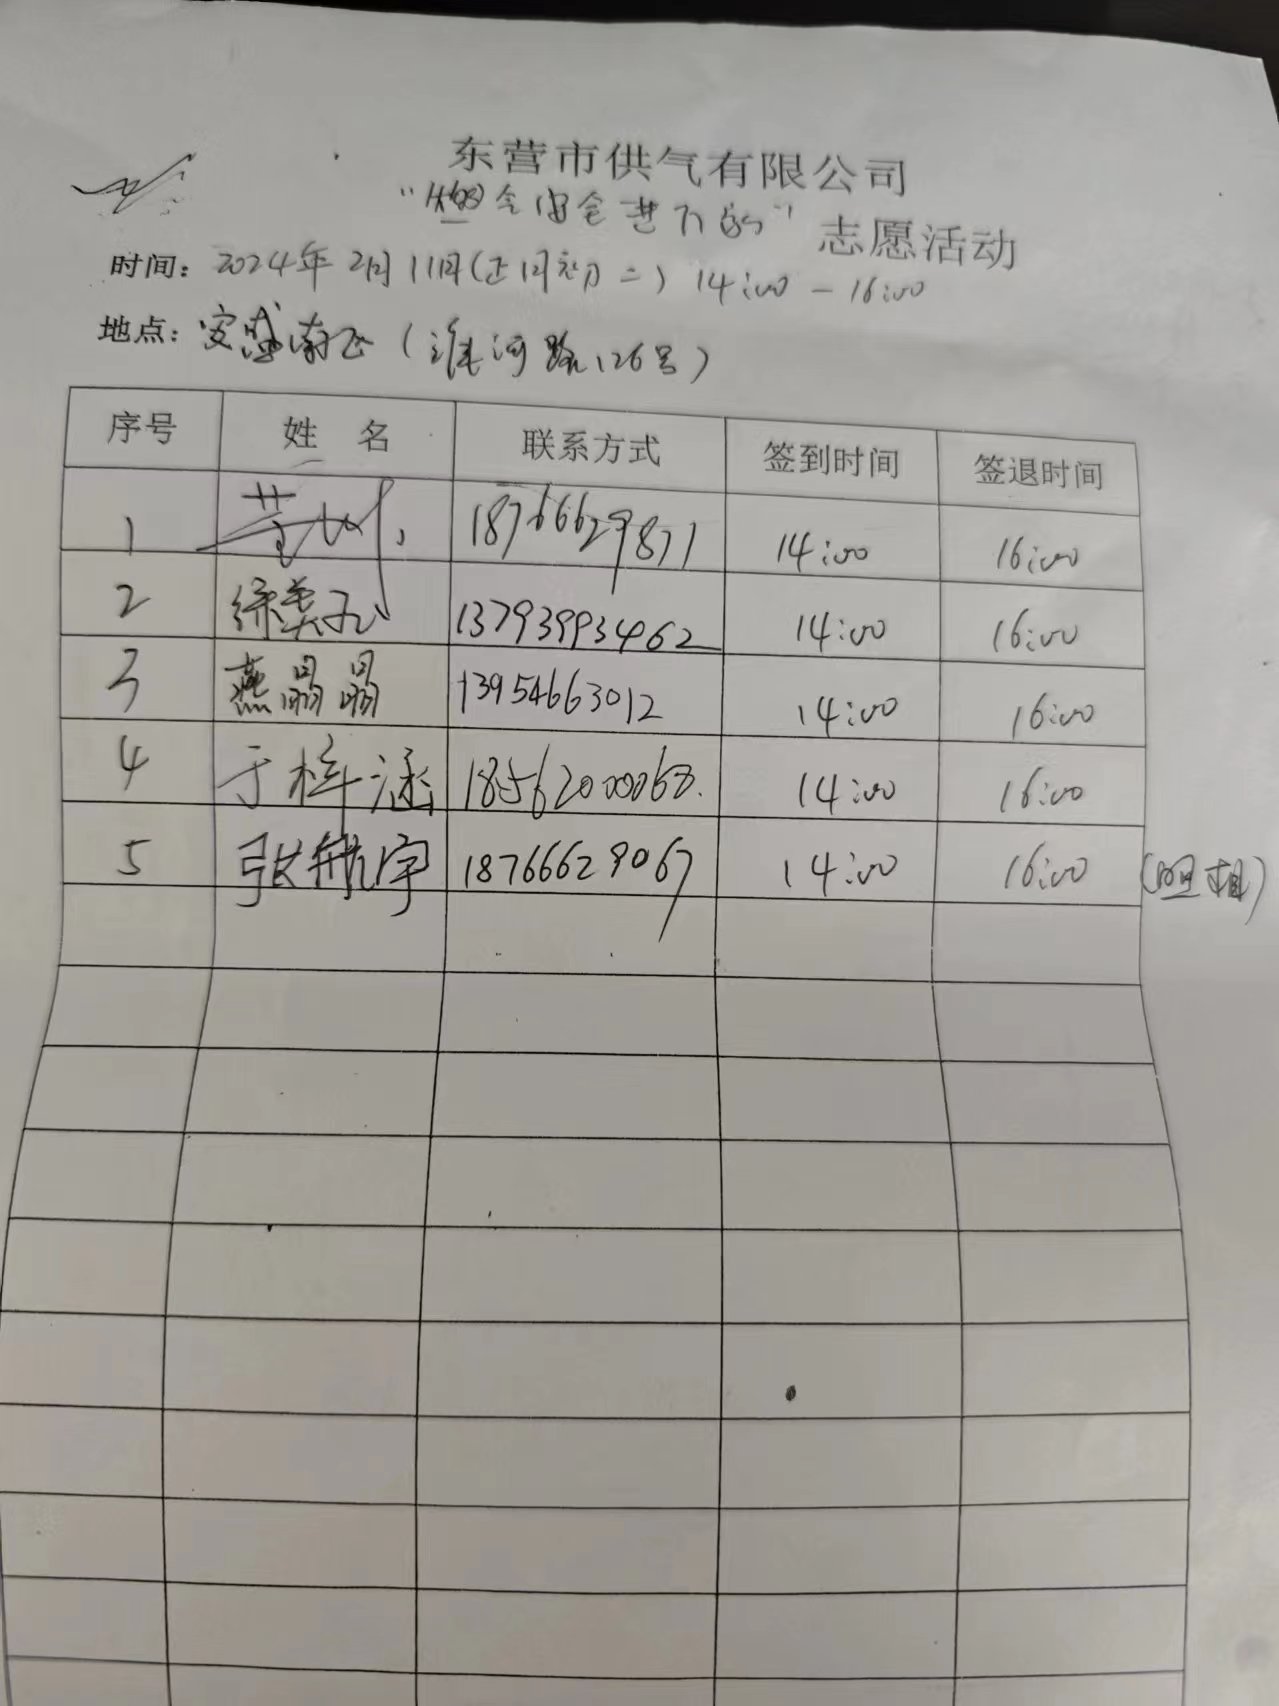 东营市供气有限公司
"燃气安全进万家" 志愿活动
时间: 2024年2月11日(正月初二) 14:00 - 16:00
地点: 安盛南区 (淮河路126号)
序号 姓 名 联系方式 签到时间 签退时间
1 18766629871 14:00 16:00
2 13793993462 14:00 16:00
3 燕晶晶 13954663012 14:00 16:00
4 于梓涵 14:00 16:00
5 张航宇 18766629067 14:00 16:00 (照相)